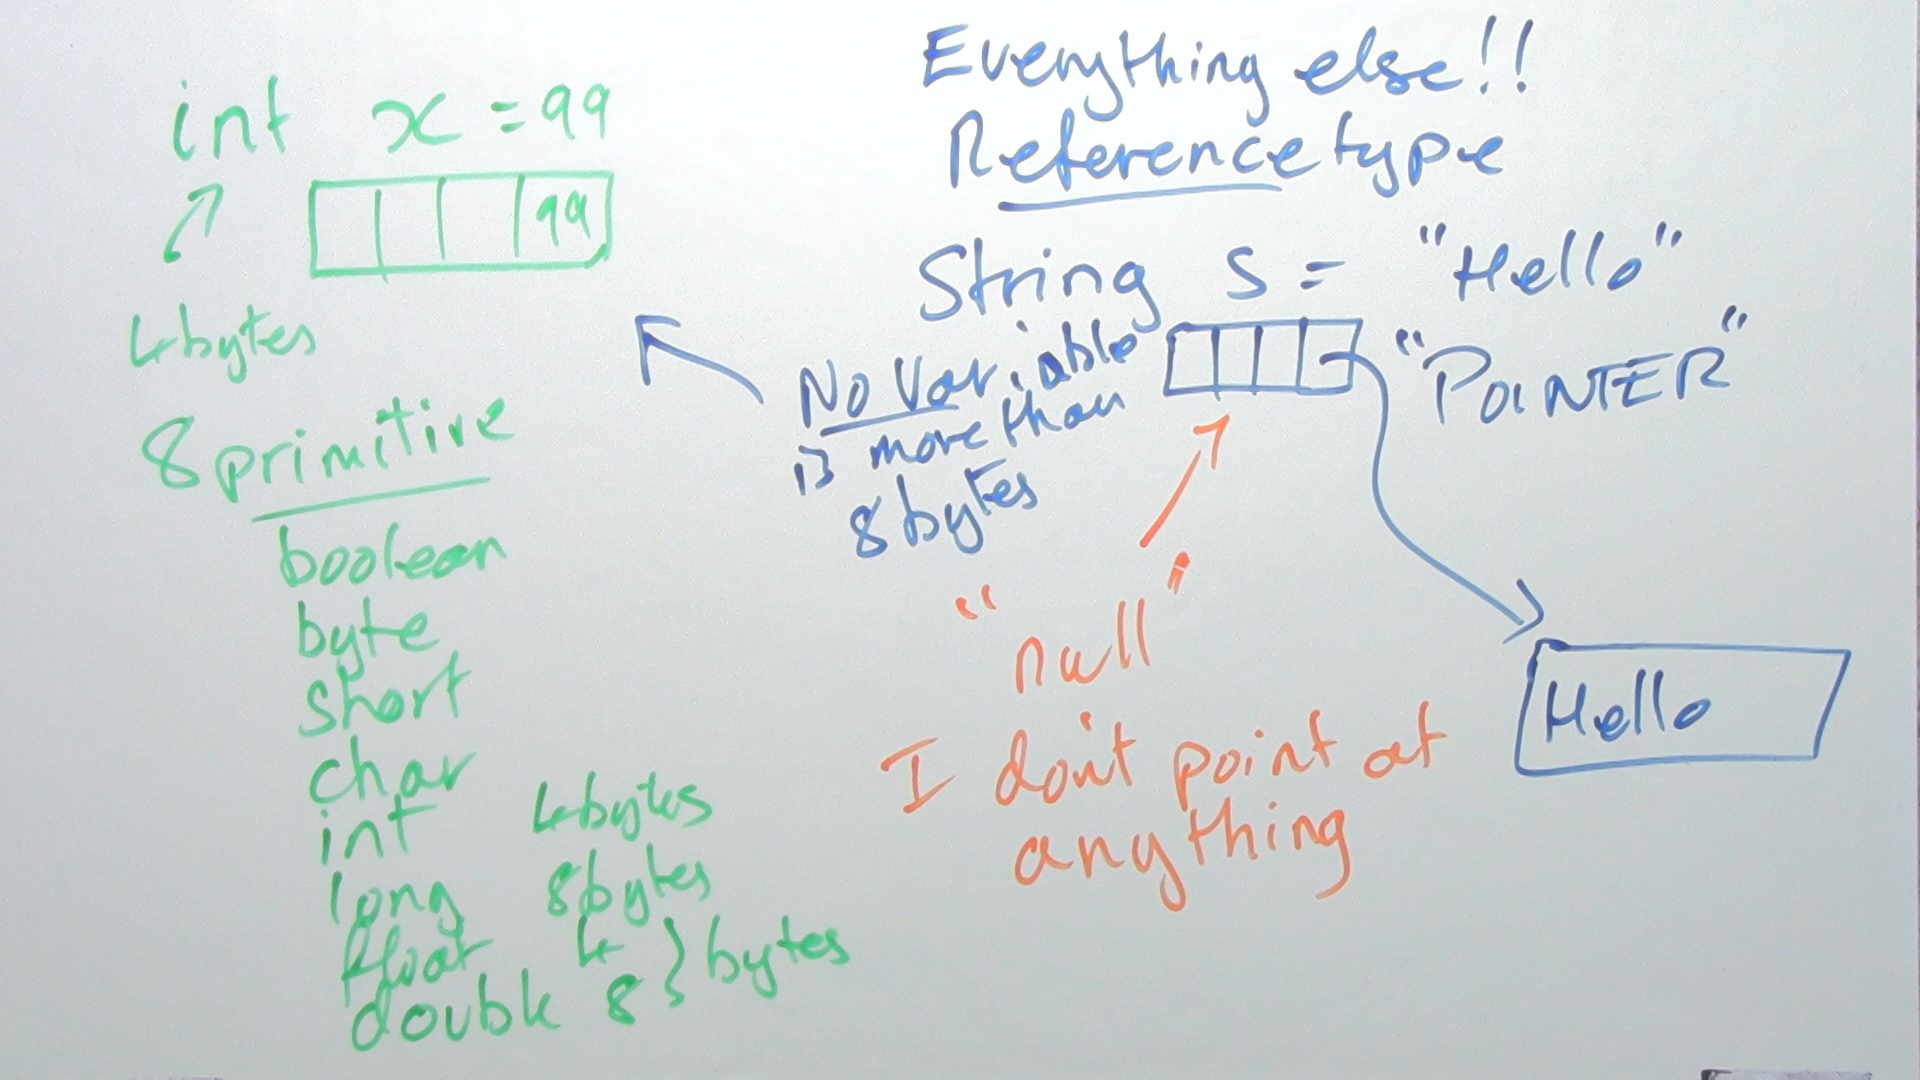 int x = 99
99
4bytes
8 primitive
boolean
byte
short
char
int 4bytes
long 8bytes
float 4 } bytes
double 8
Everything else!!
Reference type
String s = "Hello"
"POINTER"
No variable
is more than
8 bytes
"null"
I don't point at
anything
Hello